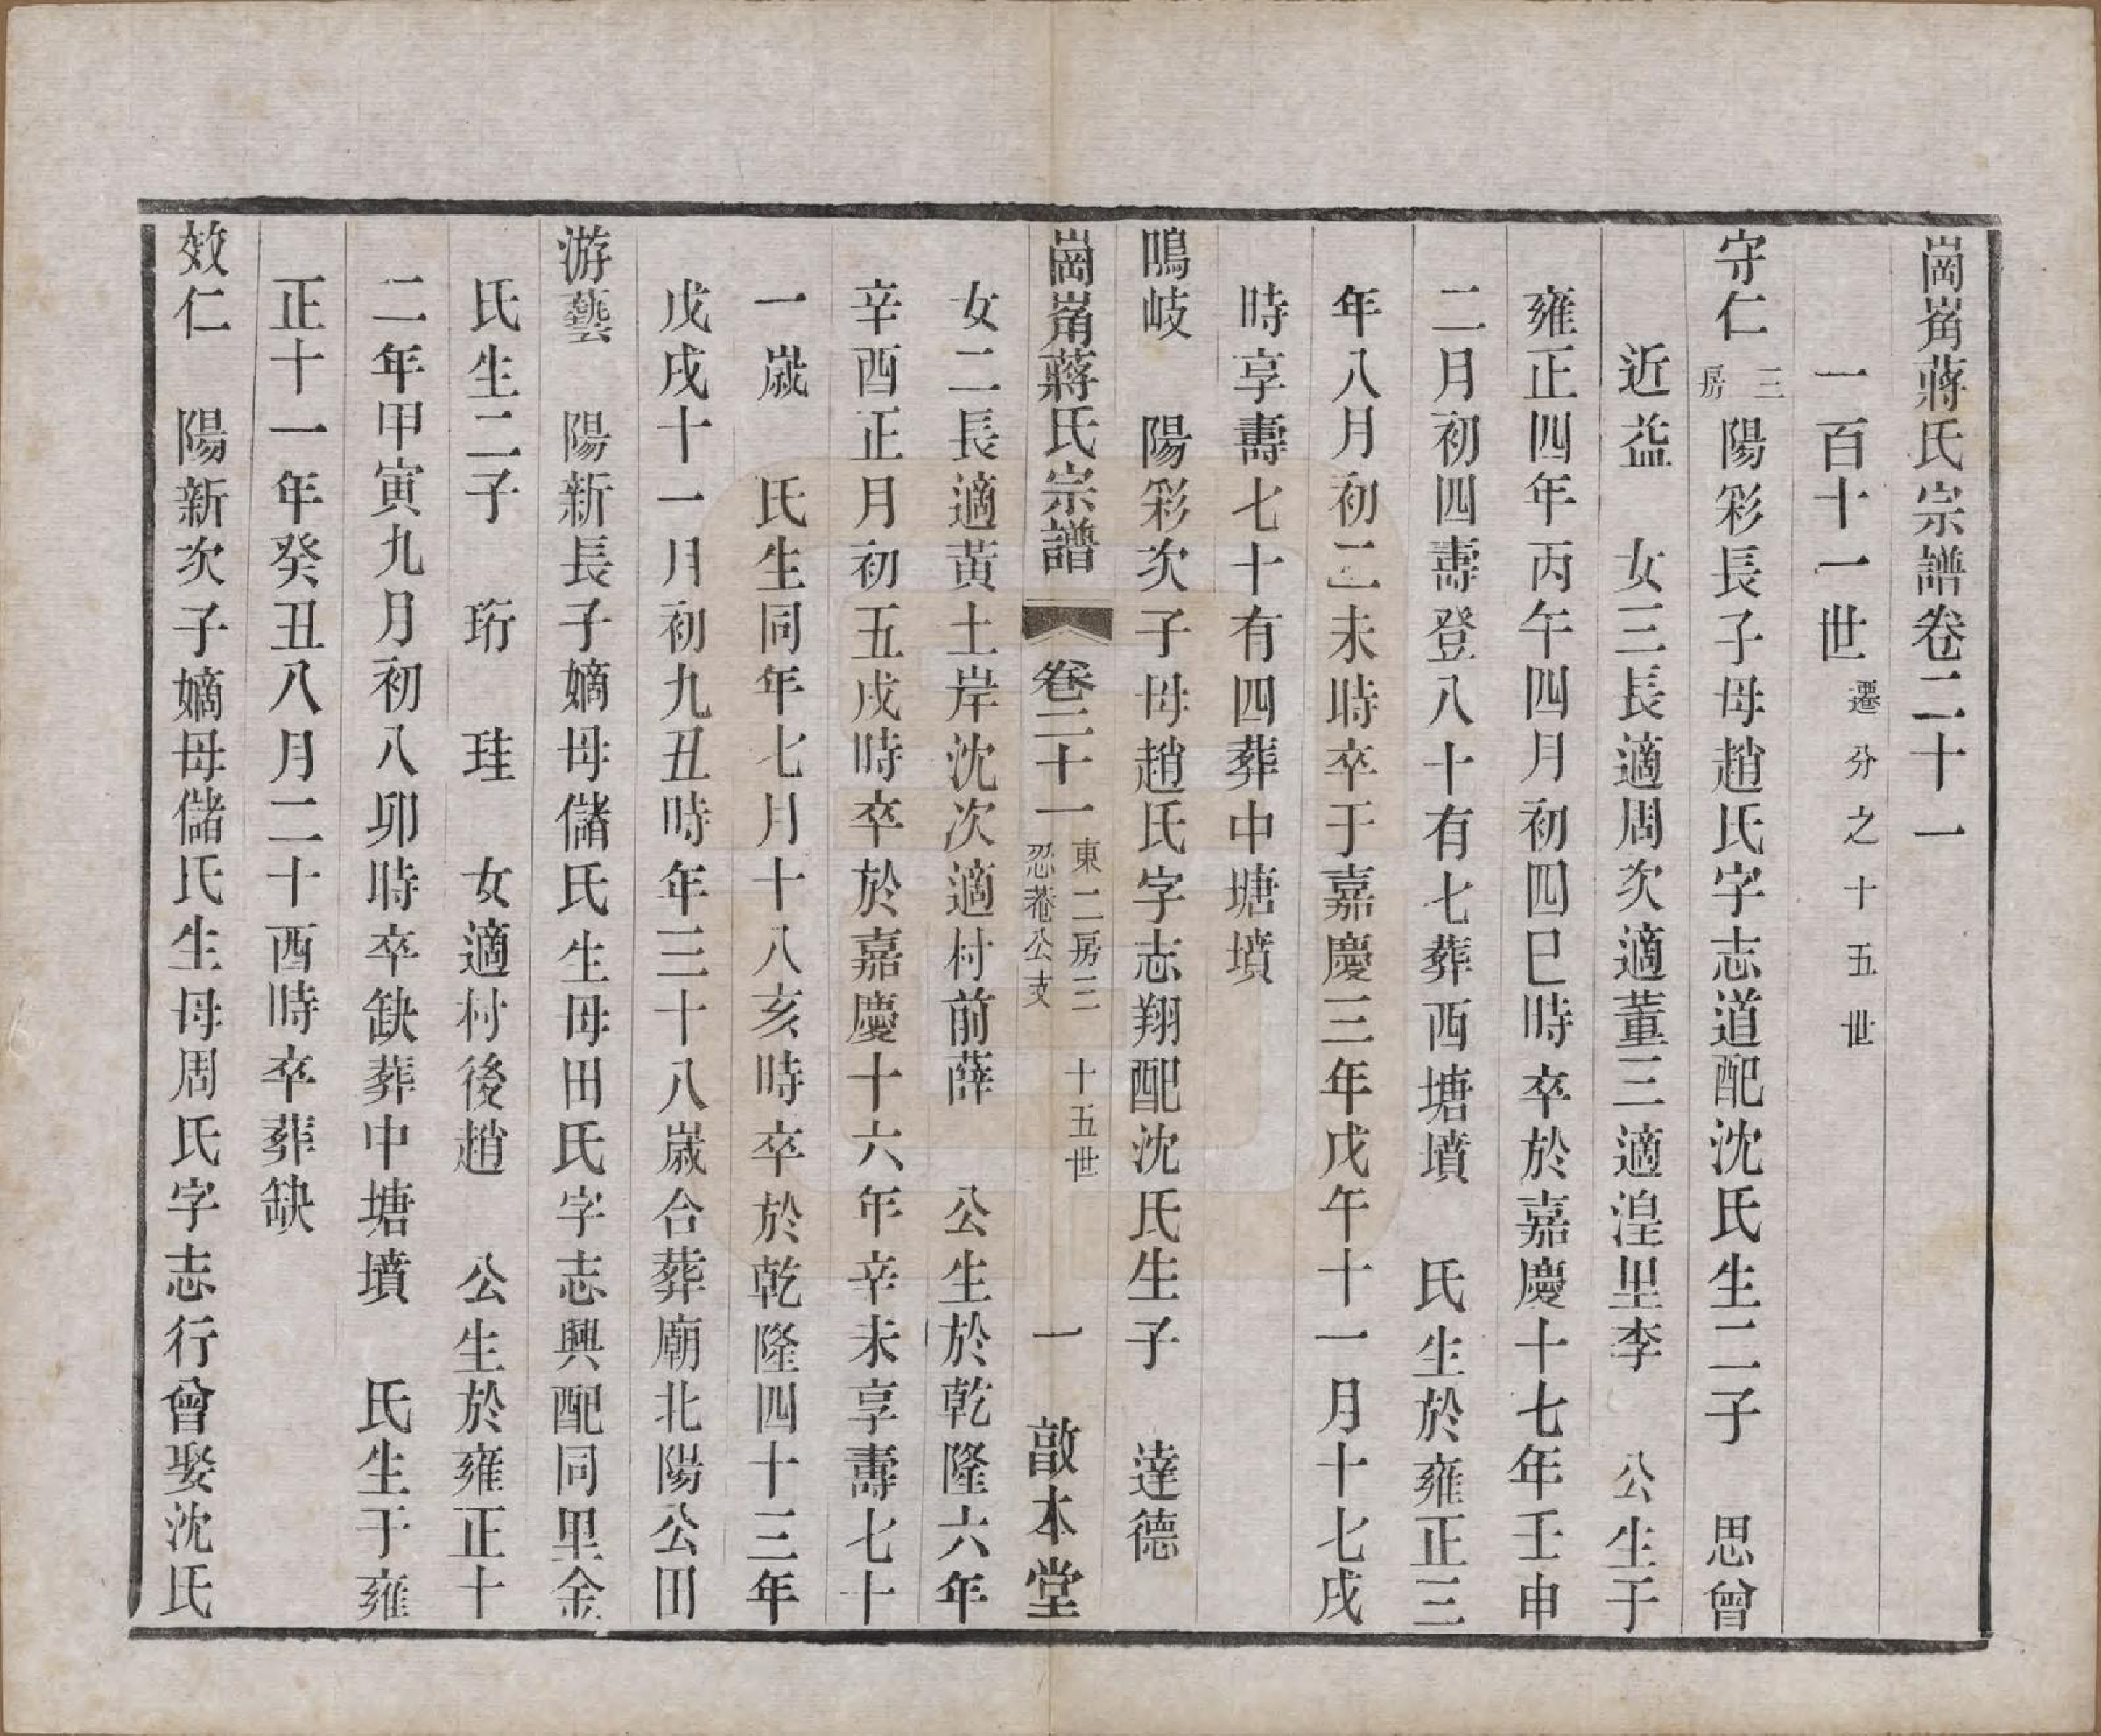 崗崗蔣氏宗譜卷二十一
一百十一世遷分之十五世
守仁三房陽彩長子母趙氏字志道配沈氏生二子　思曾
近益　女三長適周次適董三適湟里李　公生于
雍正四年丙午四月初四巳時卒於嘉慶十七年壬申
二月初四壽登八十有七葬西塘墳　氏生於雍正三
年八月初二未時卒于嘉慶三年戊午十一月十七戌
時享壽七十有四葬中塘墳
鳴岐　陽彩次子母趙氏字志翔配沈氏生子　達德
崗崗蔣氏宗譜　卷二十一　東二房三忍菴公支　十五世　一　敵本堂
女二長適黃土岸沈次適村前薛　公生於乾隆六年
辛酉正月初五戌時卒於嘉慶十六年辛未享壽七十
一歲　氏生同年七月十八亥時卒於乾隆四十三年
戊戌十一月初九丑時年三十八歲合葬廟北陽公田
游藝　陽新長子嫡母儲氏生母田氏字志興配同里金
氏生二子　珩　珪　女適村後趙　公生於雍正十
二年甲寅九月初八卯時卒缺葬中塘墳　氏生于雍
正十一年癸丑八月二十酉時卒葬缺
效仁　陽新次子嫡母儲氏生母周氏字志行曾娶沈氏